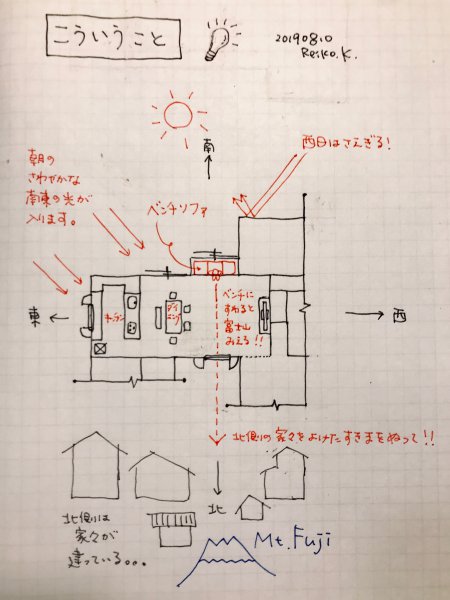 こういうこと
20190810
Reiko.K.
南
西日はさえぎる!
朝の
さわやかな
南東の光が
入ります。
ベンチソファ
東
キッチン
ダイニング
ベンチに
すわると
富士山
みえる!!
西
北側の家々をよけたすきまをぬって!!
北
北側は
家々が
建っている。。。
Mt.Fuji